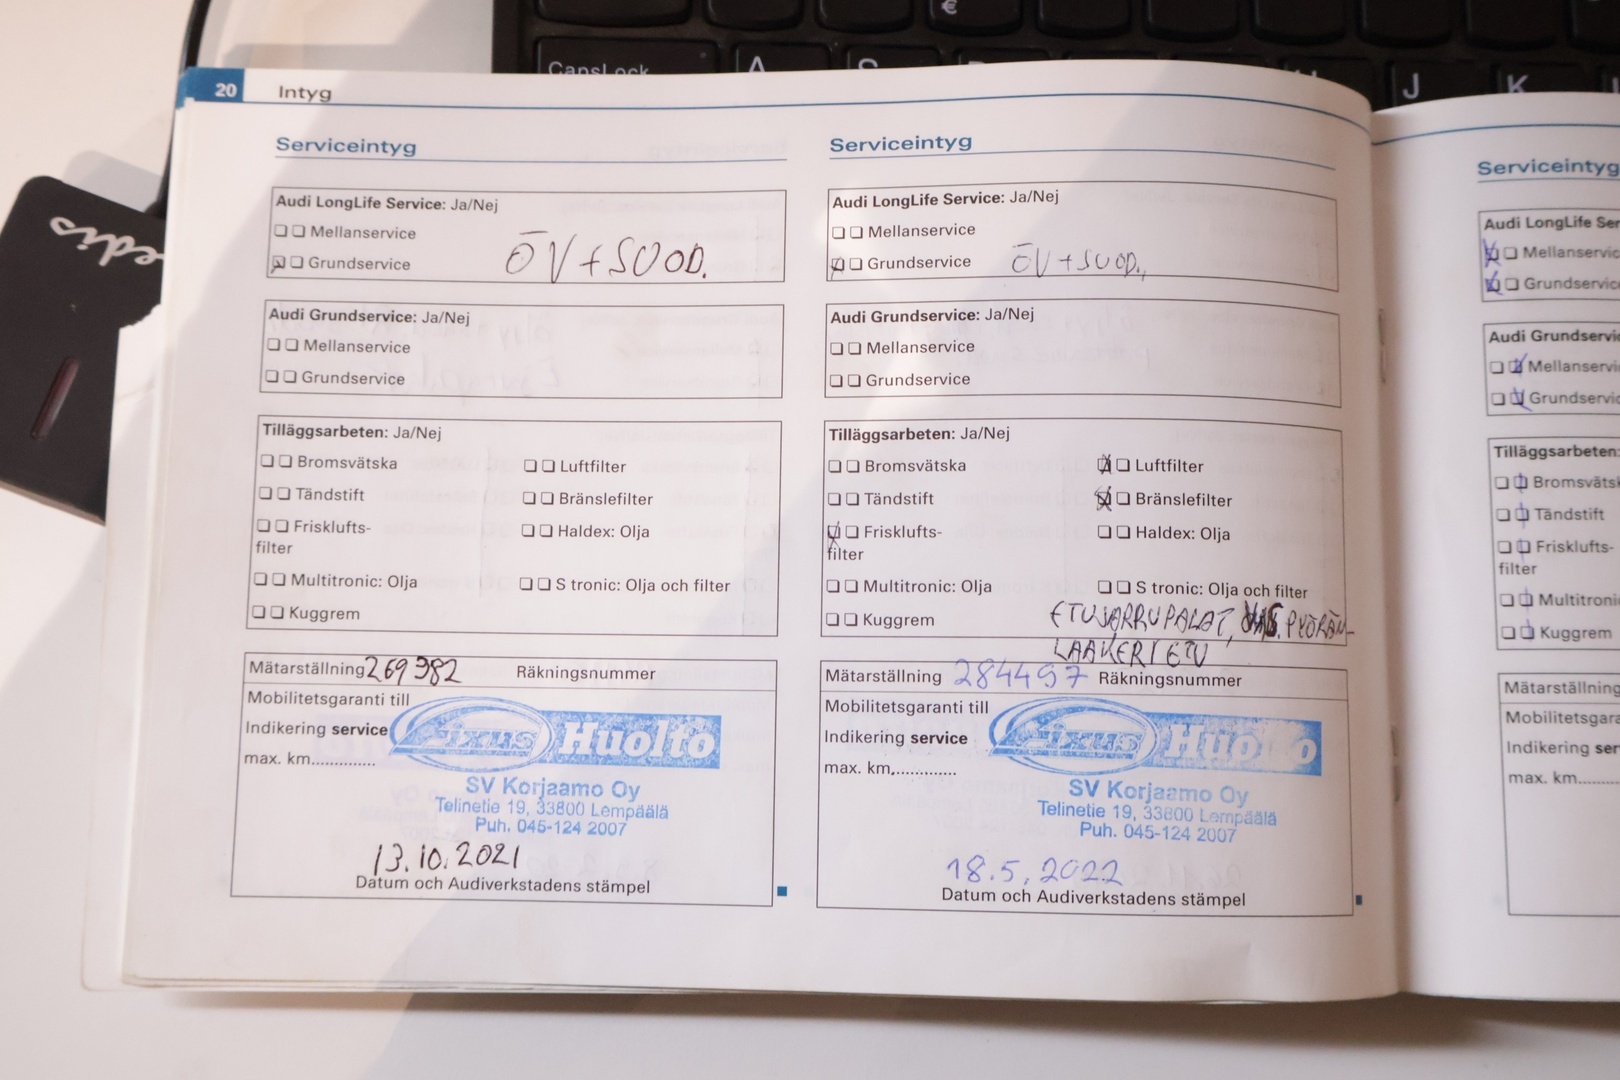 €
CapsLock A S
J K
edis
20 Intyg
Serviceintyg
Audi LongLife Service: Ja/Nej
Mellanservice
Grundservice ÖV+SUOD.
Audi Grundservice: Ja/Nej
Mellanservice
Grundservice
Tilläggsarbeten: Ja/Nej
Bromsvätska Luftfilter
Tändstift Bränslefilter
Frisklufts- Haldex: Olja
filter
Multitronic: Olja S tronic: Olja och filter
Kuggrem
Mätarställning 269382 Räkningsnummer
Mobilitetsgaranti till
Indikering service
max. km..............
Huolto
SV Korjaamo Oy
Telinetie 19, 33800 Lempäälä
Puh. 045-124 2007
13.10.2021
Datum och Audiverkstadens stämpel
Serviceintyg
Audi LongLife Service: Ja/Nej
Mellanservice
Grundservice ÖV+SUOD.
Audi Grundservice: Ja/Nej
Mellanservice
Grundservice
Tilläggsarbeten: Ja/Nej
Bromsvätska Luftfilter
Tändstift Bränslefilter
Frisklufts- Haldex: Olja
filter
Multitronic: Olja S tronic: Olja och filter
Kuggrem ETUJARRUPALAT, VAS. PYÖRÄN-
LAAKERI ETU
Mätarställning 284497 Räkningsnummer
Mobilitetsgaranti till
Indikering service
max. km..............
Huolto
SV Korjaamo Oy
Telinetie 19, 33800 Lempäälä
Puh. 045-124 2007
18.5.2022
Datum och Audiverkstadens stämpel
Serviceintyg
Audi LongLife Ser
Mellanservic
Grundservice
Audi Grundservi
Mellanservi
Grundservic
Tilläggsarbeten:
Bromsvätsk
Tändstift
Frisklufts-
filter
Multitroni
Kuggrem
Mätarställning
Mobilitetsgara
Indikering ser
max. km.......